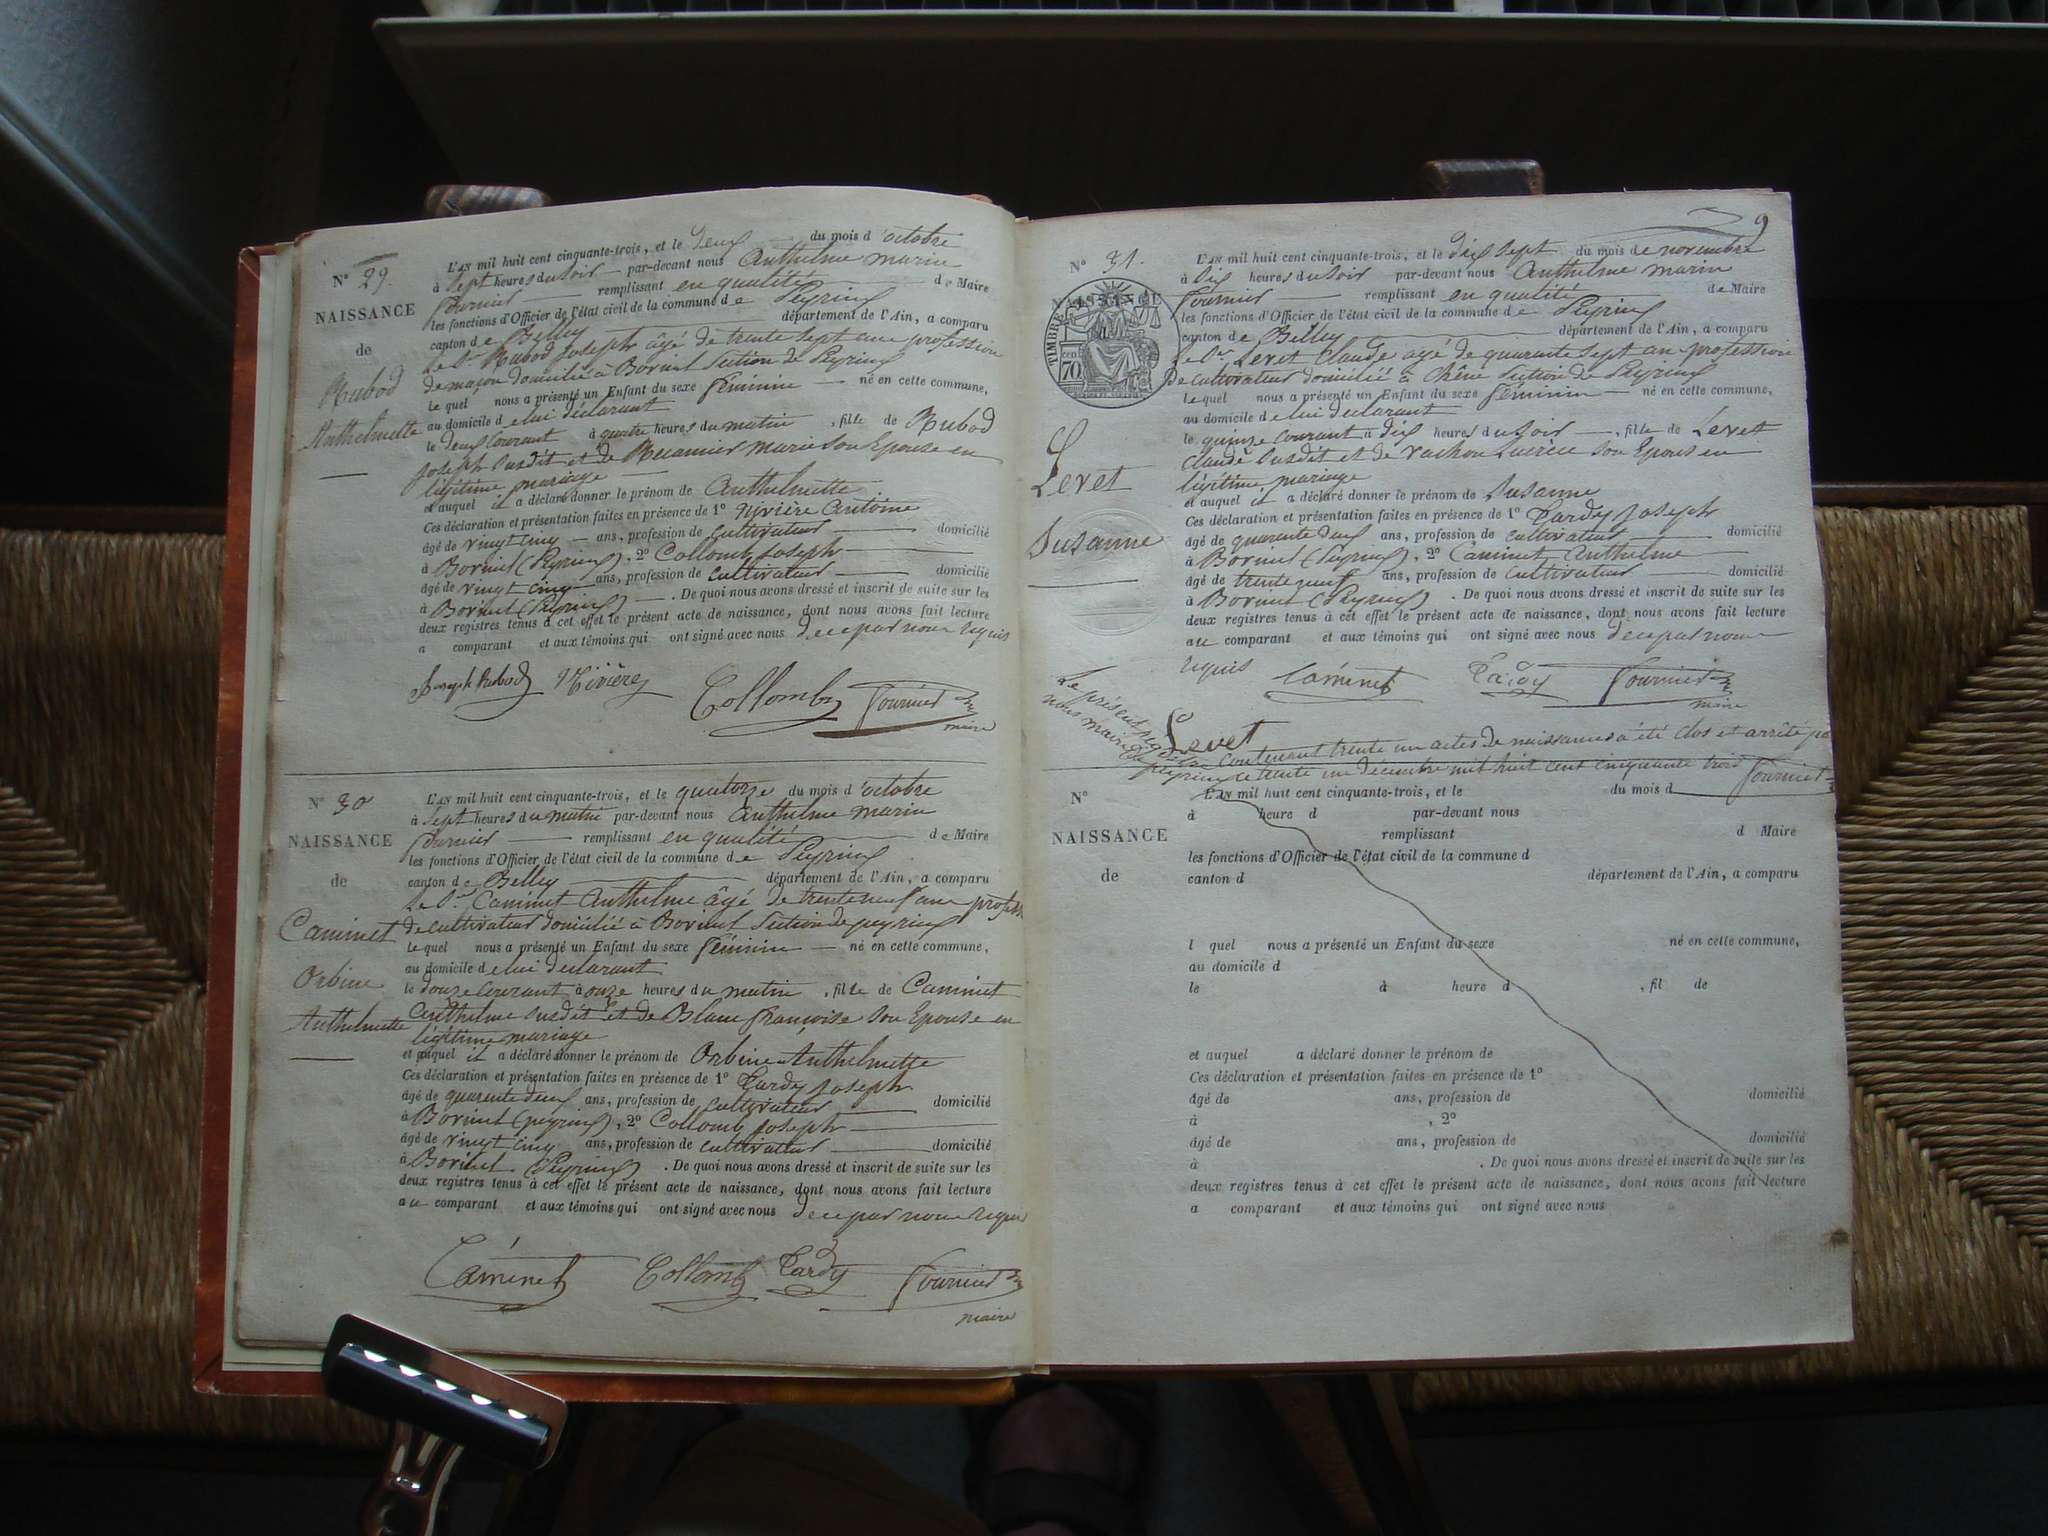 N° 29.
NAISSANCE
de
Rubod
Anthelmette
L'AN mil huit cent cinquante-trois, et le deux du mois d'octobre
à sept heures du soir par-devant nous Anthelme marin
fournier remplissant en qualité de Maire
les fonctions d'Officier de l'état civil de la commune de Peyrieu
canton de Belley département de l'Ain, a comparu
le Sr. Rubod Joseph âgé de trente sept ans profession
de maçon domicilié à Borinet Section de Peyrieu
le quel nous a présenté un Enfant du sexe féminin né en cette commune,
au domicile de lui déclarant
le deux courant à quatre heures du matin, fille de Rubod
Joseph susdit et de marie son Epouse en
légitime mariage
et auquel il a déclaré donner le prénom de Anthelmette
Ces déclaration et présentation faites en présence de 1° Rivière Antoine
âgé de vingt cinq ans, profession de cultivateur domicilié
à Borinet (Peyrieu), 2° Collomb Joseph
âgé de vingt cinq ans, profession de cultivateur domicilié
à Borinet (Peyrieu). De quoi nous avons dressé et inscrit de suite sur les
deux registres tenus à cet effet le présent acte de naissance, dont nous avons fait lecture
a comparant et aux témoins qui ont signé avec nous de ce par nous requis
Joseph Rubod Rivière Collomb fournier
maire
N° 30
NAISSANCE
de
Caminet
Orbine
Anthelmette
L'AN mil huit cent cinquante-trois, et le quatorze du mois d'octobre
à sept heures du matin par-devant nous Anthelme marin
fournier remplissant en qualité de Maire
les fonctions d'Officier de l'état civil de la commune de Peyrieu
canton de Belley département de l'Ain, a comparu
le Sr. Caminet Anthelme âgé de trente neuf ans profess
de cultivateur domicilié à Borinet Section de peyrieu
le quel nous a présenté un Enfant du sexe féminin né en cette commune,
au domicile de lui déclarant
le douze courant à onze heures du matin, fille de Caminet
Anthelme susdit et de Blanc françoise son Epouse en
légitime mariage
et auquel il a déclaré donner le prénom de Orbine Anthelmette
Ces déclaration et présentation faites en présence de 1° Tardy Joseph
âgé de quarente deux ans, profession de cultivateur domicilié
à Borinet (peyrieu), 2° Collomb Joseph
âgé de vingt cinq ans, profession de cultivateur domicilié
à Borinet (Peyrieu). De quoi nous avons dressé et inscrit de suite sur les
deux registres tenus à cet effet le présent acte de naissance, dont nous avons fait lecture
au comparant et aux témoins qui ont signé avec nous de ce par nous requis
Caminet Collomb Tardy fournier
maire
9
N° 31.
NAISSANCE
TIMBRE
70
Levet
Susanne
L'AN mil huit cent cinquante-trois, et le dix sept du mois de novembre
à six heures du soir par-devant nous Anthelme marin
fournier remplissant en qualité de Maire
les fonctions d'Officier de l'état civil de la commune de Peyrieu
canton de Belley département de l'Ain, a comparu
le Sr. Levet Claude agé de quarante sept an profession
de cultivateur domicilié à Chêne Section de Peyrieu
le quel nous a présenté un Enfant du sexe féminin né en cette commune,
au domicile de lui déclarant
le quinze courant à dix heures du soir, fille de Levet
Claude susdit et de Vachon Lucrèce son Epous en
légitime mariage
et auquel il a déclaré donner le prénom de Susanne
Ces déclaration et présentation faites en présence de 1° Tardy Joseph
âgé de quarente deux ans, profession de cultivateur domicilié
à Borinet (Peyrieu), 2° Caminet Anthelme
âgé de trente neuf ans, profession de cultivateur domicilié
à Borinet (Peyrieu). De quoi nous avons dressé et inscrit de suite sur les
deux registres tenus à cet effet le présent acte de naissance, dont nous avons fait lecture
au comparant et aux témoins qui ont signé avec nous de ce par nous
requis Caminet Tardy fournier
maire
Levet
Le présent registre contenant trente un actes de naissances a été clos et arrêté par
nous maire de peyrieu le trente un décembre mil huit cent cinquante trois fournier
N°
NAISSANCE
de
L'AN mil huit cent cinquante-trois, et le du mois d
à heure d par-devant nous
remplissant d Maire
les fonctions d'Officier de l'état civil de la commune d
canton d département de l'Ain, a comparu
l quel nous a présenté un Enfant du sexe né en cette commune,
au domicile d
le à heure d , fil de
et auquel a déclaré donner le prénom de
Ces déclaration et présentation faites en présence de 1°
âgé de ans, profession de domicilié
à , 2°
âgé de ans, profession de domicilié
à . De quoi nous avons dressé et inscrit de suite sur les
deux registres tenus à cet effet le présent acte de naissance, dont nous avons fait lecture
a comparant et aux témoins qui ont signé avec nous